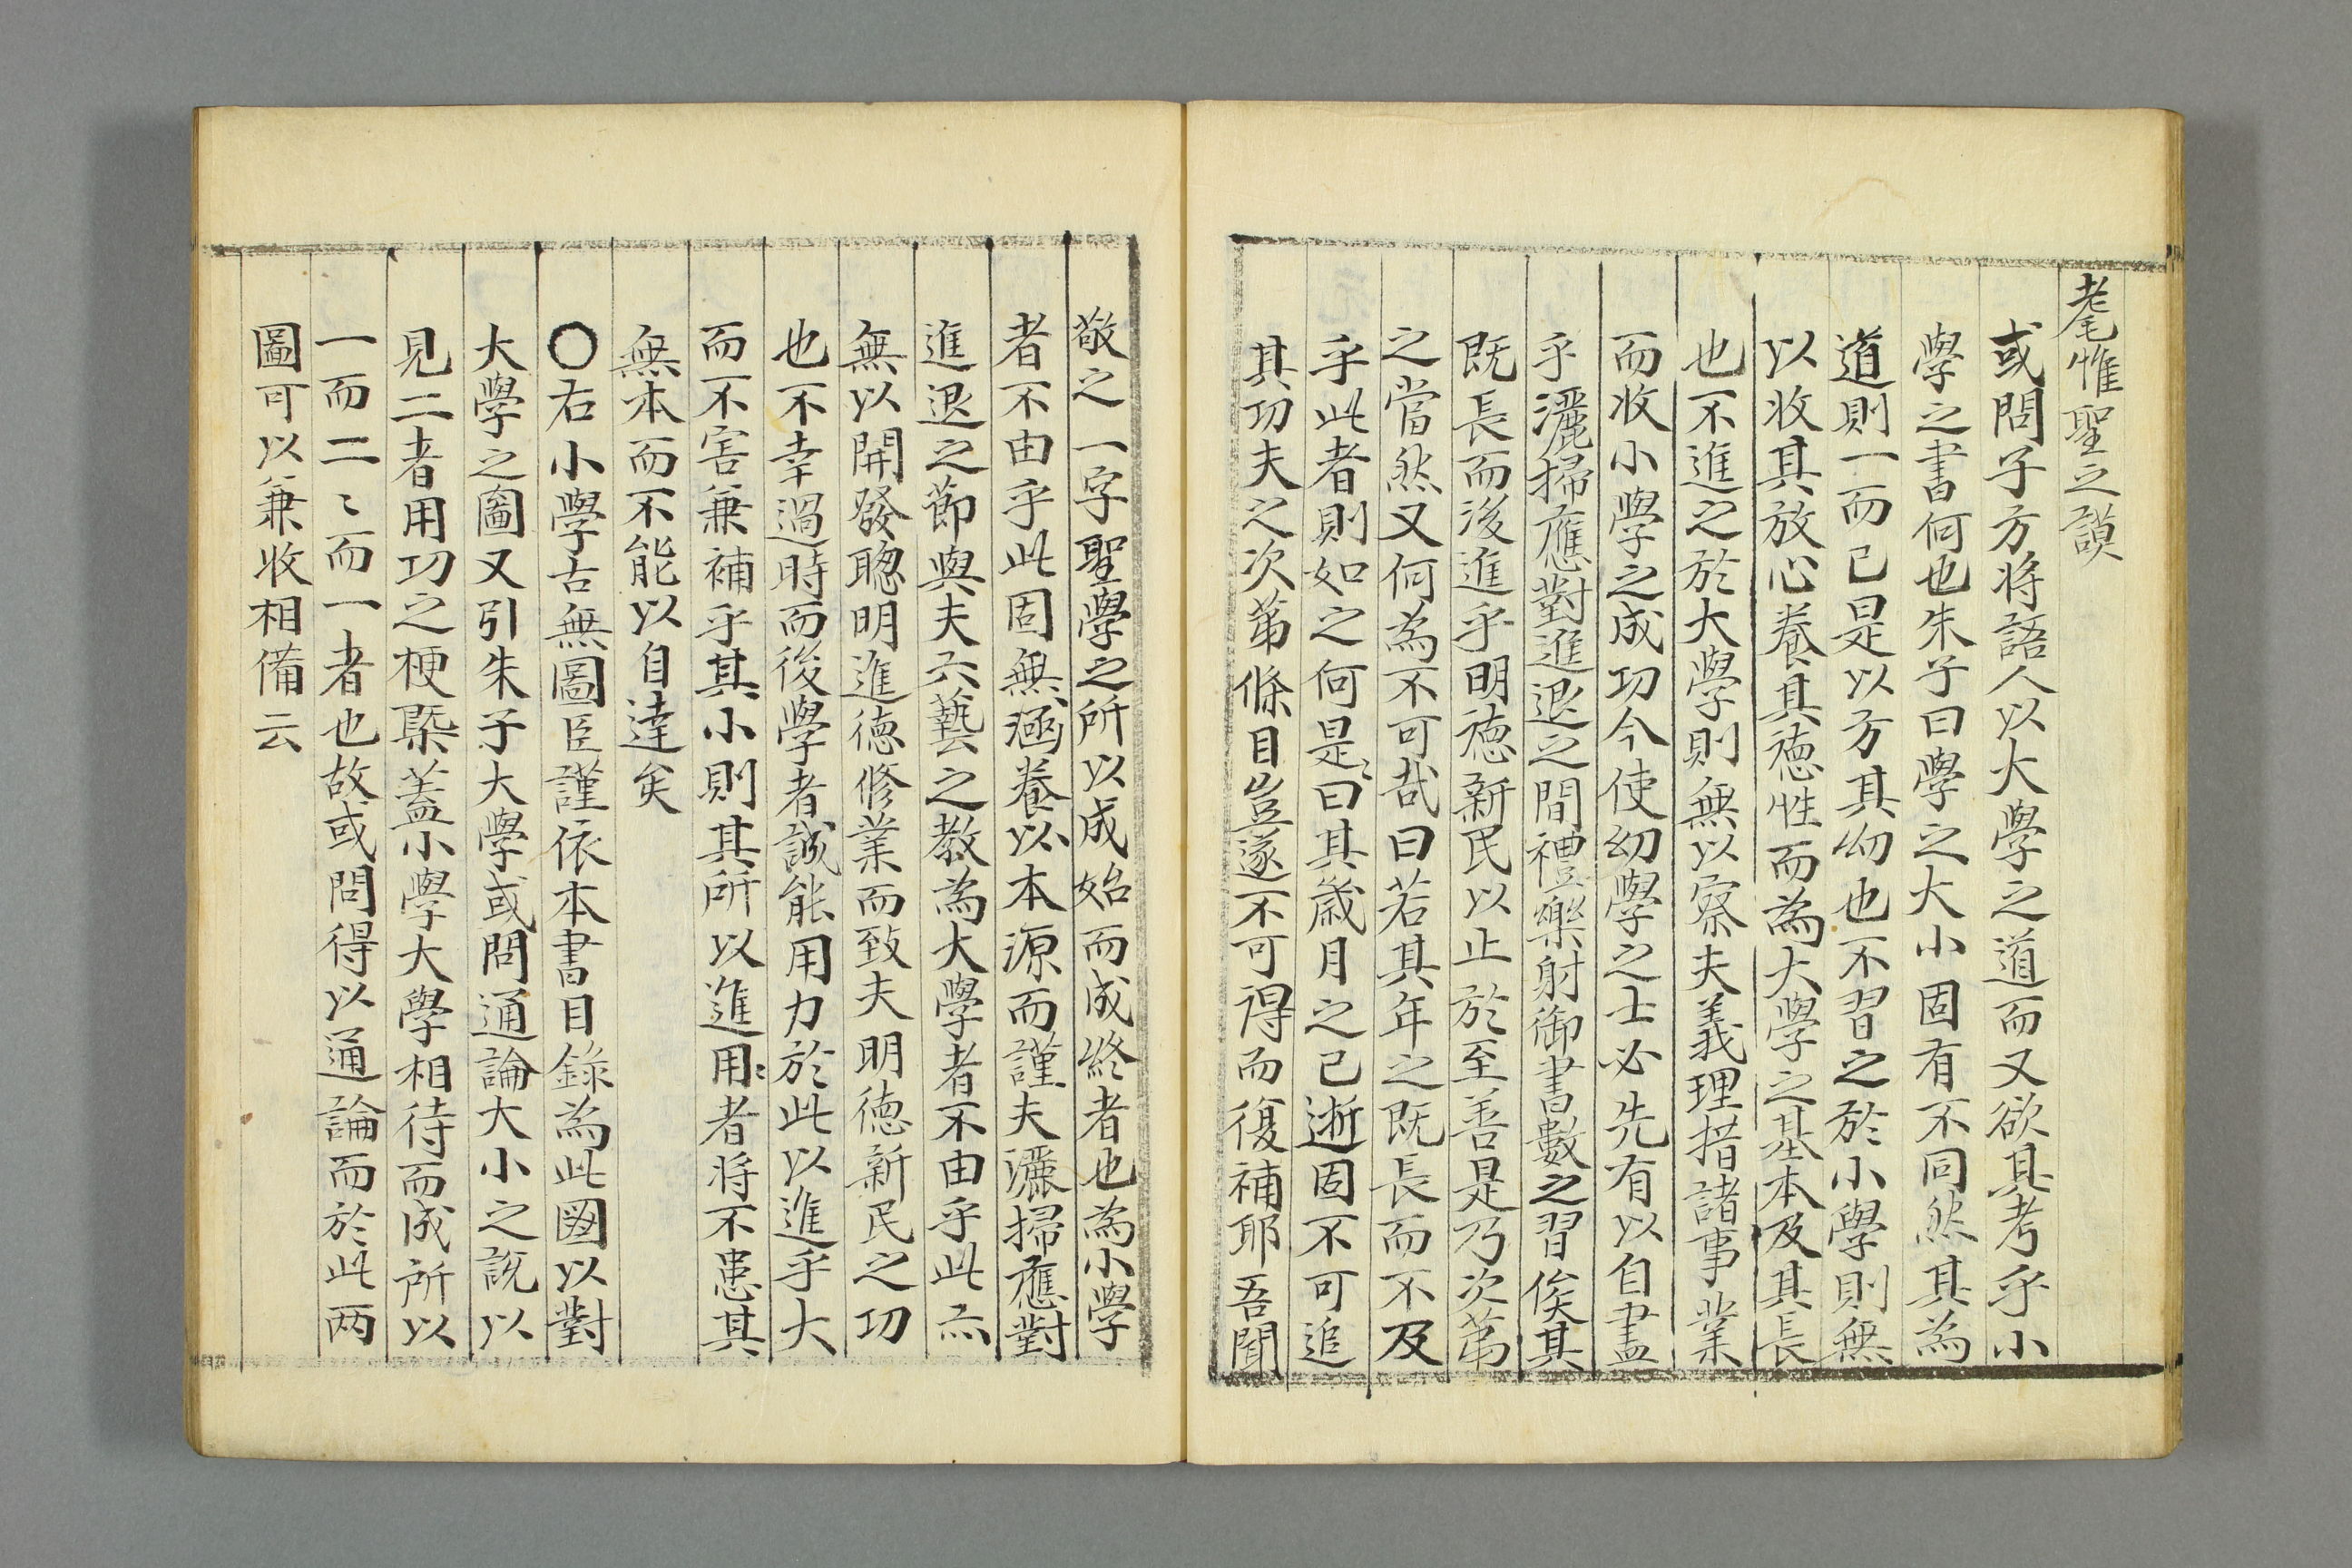 耄惟聖之謨
或問子方將語人以大學之道而又欲其考乎小
學之書何也朱子曰學之大小固有不同然其為
道則一而已是以方其幼也不習之於小學則無
以收其放心養其德性而為大學之基本及其長
也不進之於大學則無以察夫義理措諸事業
而收小學之成功今使幼學之士必先有以自盡
乎灑掃應對進退之間禮樂射御書數之習俟其
既長而後進乎明德新民以止於至善是乃次第
之當然又何為不可哉曰若其年之既長而不及
乎此者則如之何是〻曰其歲月之已逝固不可追
其功夫之次第條目豈遂不可得而復補耶吾聞
敬之一字聖學之所以成始而成終者也為小學
者不由乎此固無涵養以本源而謹夫灑掃應對
進退之節與夫六藝之教為大學者不由乎此亦
無以開發聰明進德修業而致夫明德新民之功
也不幸過時而後學者誠能用力於此以進乎大
而不害兼補乎其小則其所以進用〻者將不患其
無本而不能以自達矣
○右小學古無圖臣謹依本書目錄為此圖以對
大學之圖又引朱子大學或問通論大小之說以
見二者用功之梗槩蓋小學大學相待而成所以
一而二〻而一者也故或問得以通論而於此两
圖可以兼收相備云